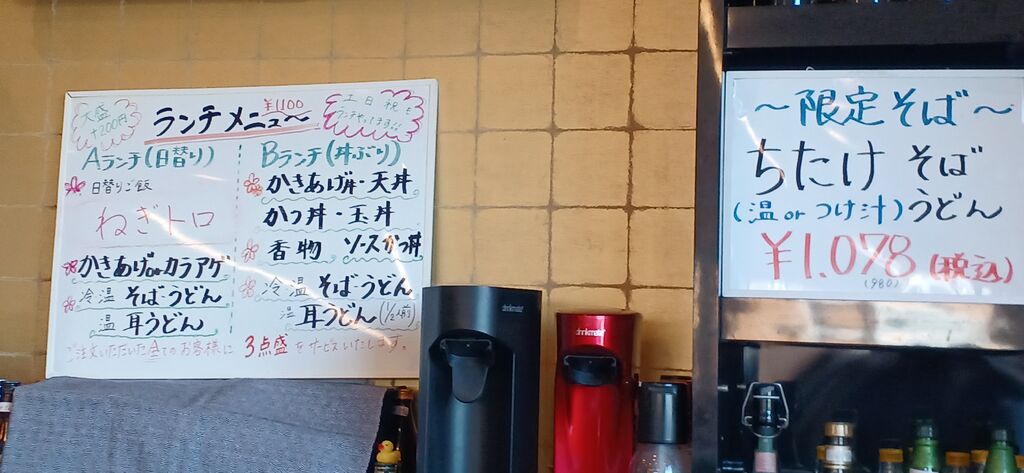 大盛
+200円
ランチメニュ〜
¥1100
土日祝も
ランチやってます!!
Aランチ(日替り)
日替りご飯
ねぎトロ
かきあげorカラアゲ
冷 温 そば・うどん
温 耳うどん
Bランチ(丼ぶり)
かきあげ丼・天丼
かつ丼・玉丼
香物 ソースかつ丼
冷 温 そば・うどん
温 耳うどん(1/2人前)
ご注文いただいた全てのお客様に 3点盛をサービスいたします。
drinkmate
drinkmate
〜限定そば〜
ちたけ そば
(温orつけ汁)うどん
¥1.078(税込)
(980)